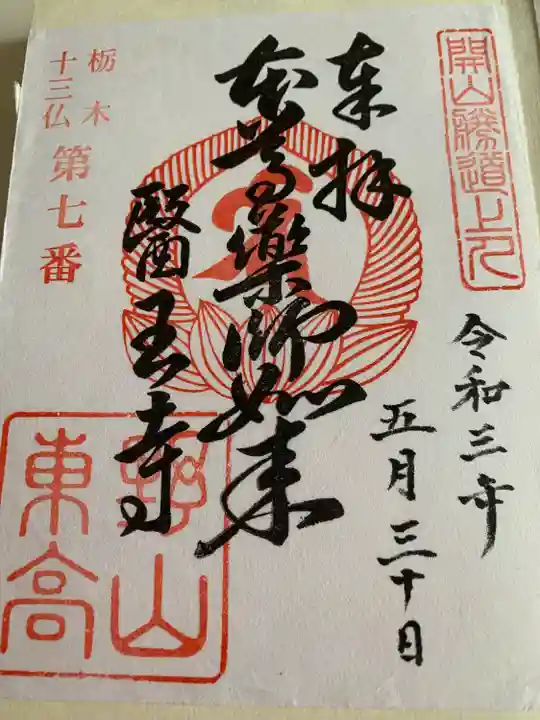 開山勝道上人
奉拝
令和三年
五月三十日
本尊薬師如来
醫王寺
栃木
十三仏
第七番
東高野山